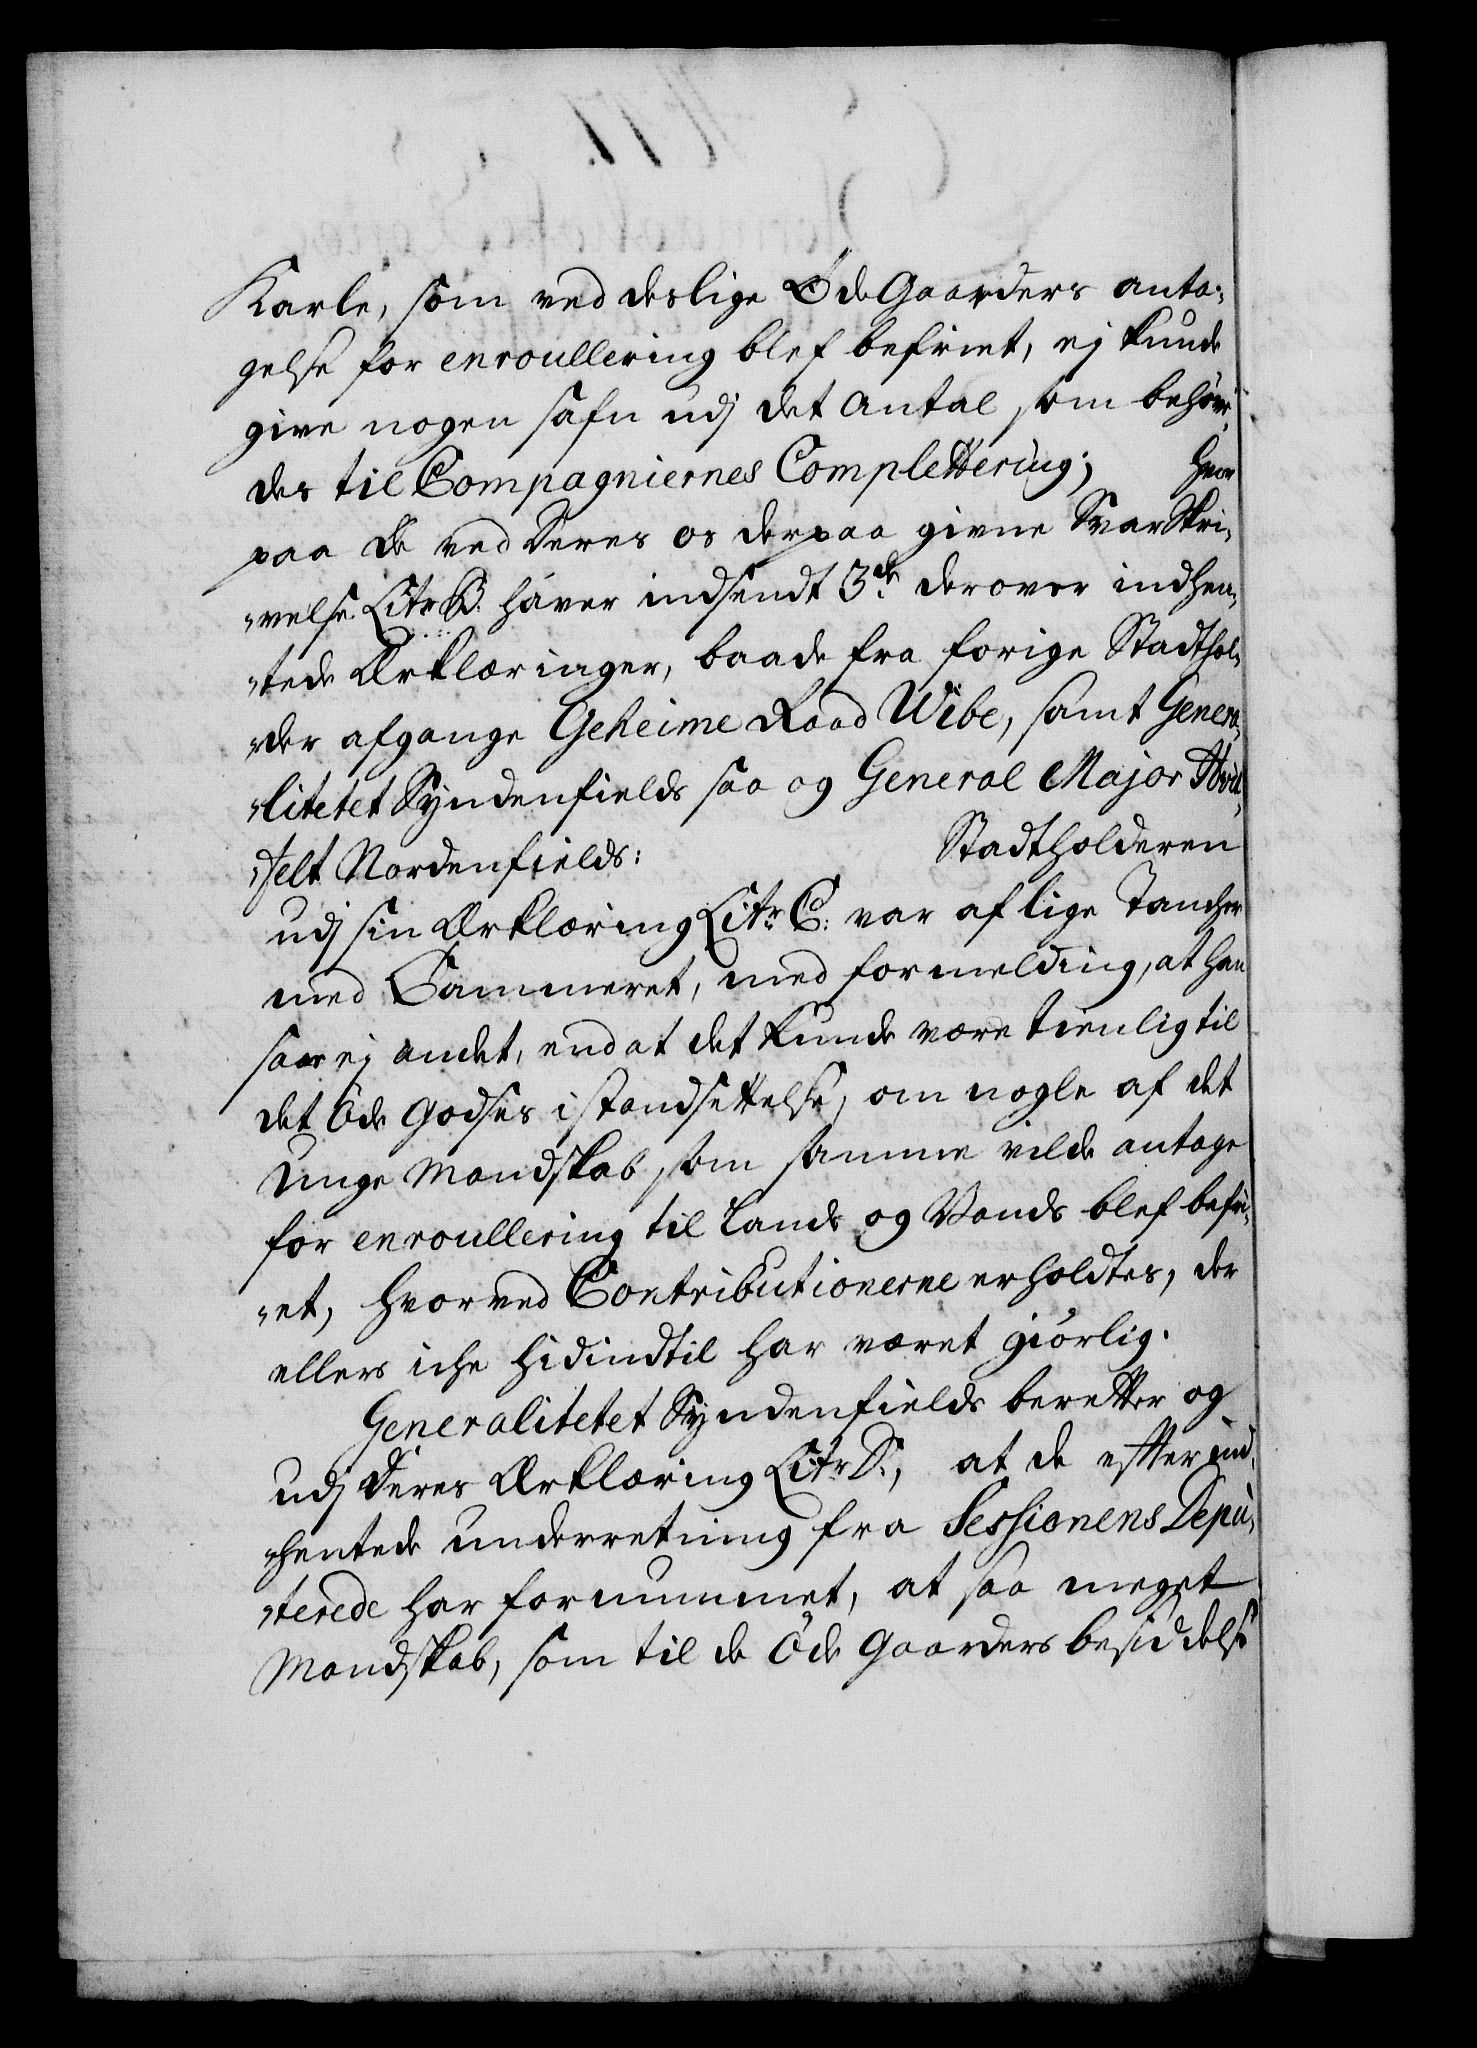 Karle, som ved deslige Øde Gaarders anta-
gelse for enroullering blef befriet, ej kunde
give nogen safn udj det Antal som behöve,
des til Compagniernes Complettering; Hvor
paa de ved Deres os derpaa givne Svar Skri,
"velse Litr. B. haver indsendt 3de derover indhen,
"tede Erklæringer, baade fra forige Stadthol,
"der afgangne Geheime Raad Wibe, samt Genera,
"litetet Syndenfields saa og General Major Hvit,
"felt Nordenfields: Stadtholderen
udj sin Erklæring Litr. C. var af lige Tancher
med Cammeret, med formelding, at han
saae ej andet, end at det kunde være tienlig til
det Øde Godses istandsettelse, om nogle af det
Unge Mandskab som samme vilde antage
for enroullering til Lands og Vands blef befri,
"et, hvorved Contributionerne erholdtes, der
ellers iche hidindtil har været giörlig.
Generalitetet Syndenfields beretter og
udj Deres Erklæring Litr. D., at de effter ind,
"hentede underretning fra Sessionens Depu,
"terede har fornummet, at saa meget
Mandskab, som til de Øde Gaarders besiddelse